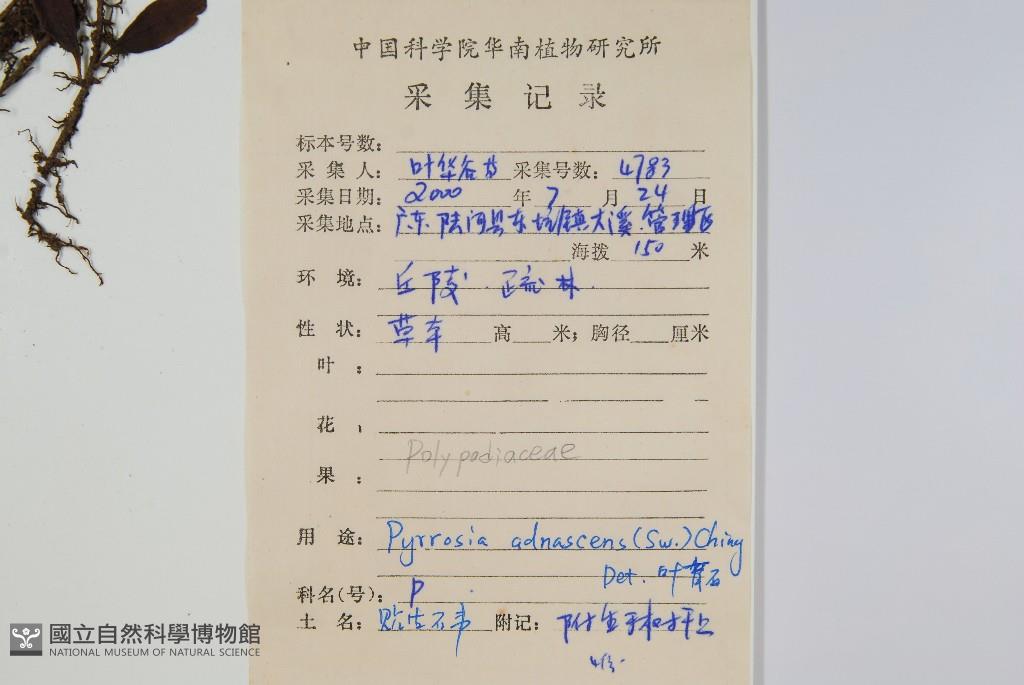 中国科学院华南植物研究所
采集记录
标本号数:
采集人: 叶华谷等 采集号数: 4783
采集日期: 2000 年 7 月 24 日
采集地点: 广东陆河县东坑镇大溪管理区
海拨 150 米
环境: 丘陵·疏林
性状: 草本 高 米; 胸径 厘米
叶:
花:
Polypodiaceae
果:
用途: Pyrrosia adnascens (Sw.) Ching
Det. 叶
科名(号): P
土名: 贴生石韦 附记: 附生于树干上
國立自然科學博物館
NATIONAL MUSEUM OF NATURAL SCIENCE